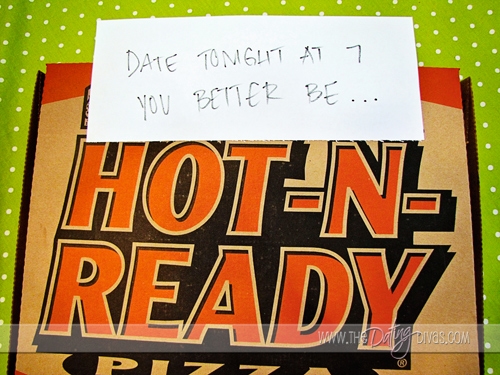 DATE TONIGHT AT 7
YOU BETTER BE...
HOT-N-
READY
PIZZA
®
WWW.THE Dating DIVAS.COM